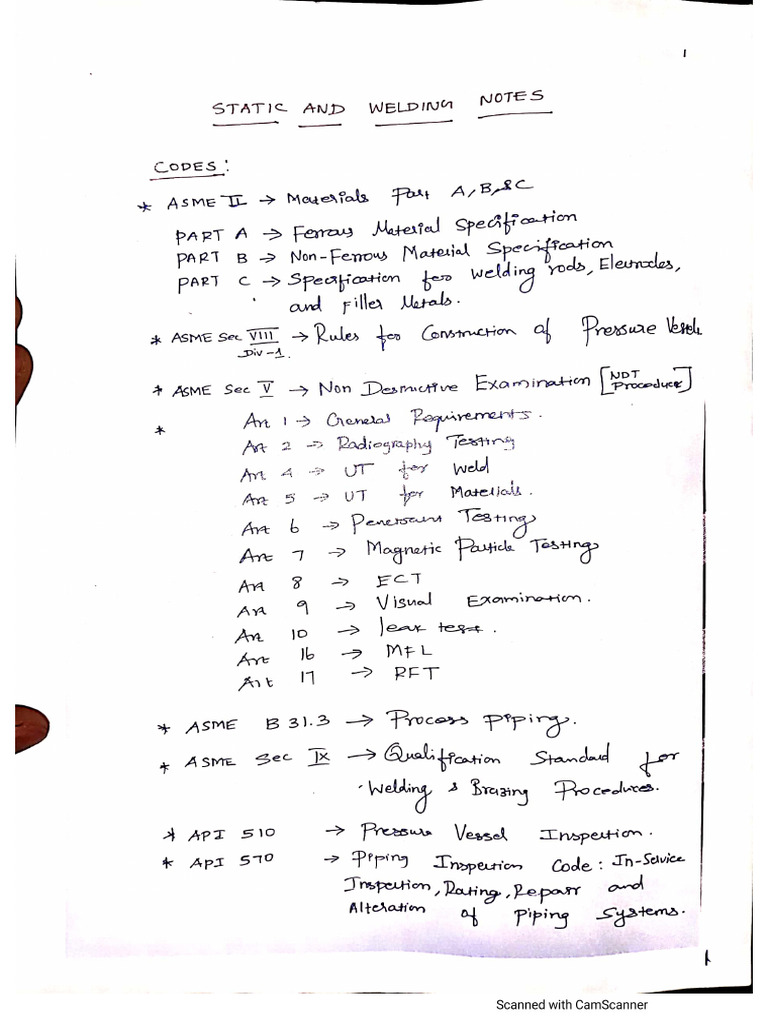 1
STATIC AND WELDING NOTES
CODES:
* ASME II → Materials Part A, B, & C
PART A → Ferrous Material Specification
PART B → Non-Ferrous Material Specification
PART C → Specification for Welding rods, Electrodes,
and Filler Metals.
* ASME Sec VIII → Rules for Construction of Pressure Vessels
Div-1.
* ASME Sec V → Non Destructive Examination [NDT
Procedure]
*
Art 1 → General Requirements.
Art 2 → Radiography Testing
Art 4 → UT for Weld
Art 5 → UT for Materials.
Art 6 → Penetrant Testing
Art 7 → Magnetic Particle Testing
Art 8 → ECT
Art 9 → Visual Examination.
Art 10 → leak test.
Art 16 → MFL
Art 17 → RFT
* ASME B 31.3 → Process piping.
* ASME Sec IX → Qualification Standard for
Welding & Brazing Procedures.
* API 510 → Pressure Vessel Inspection.
* API 570 → Piping Inspection Code: In-Service
Inspection, Rating, Repair and
Alteration of Piping Systems.
Scanned with CamScanner